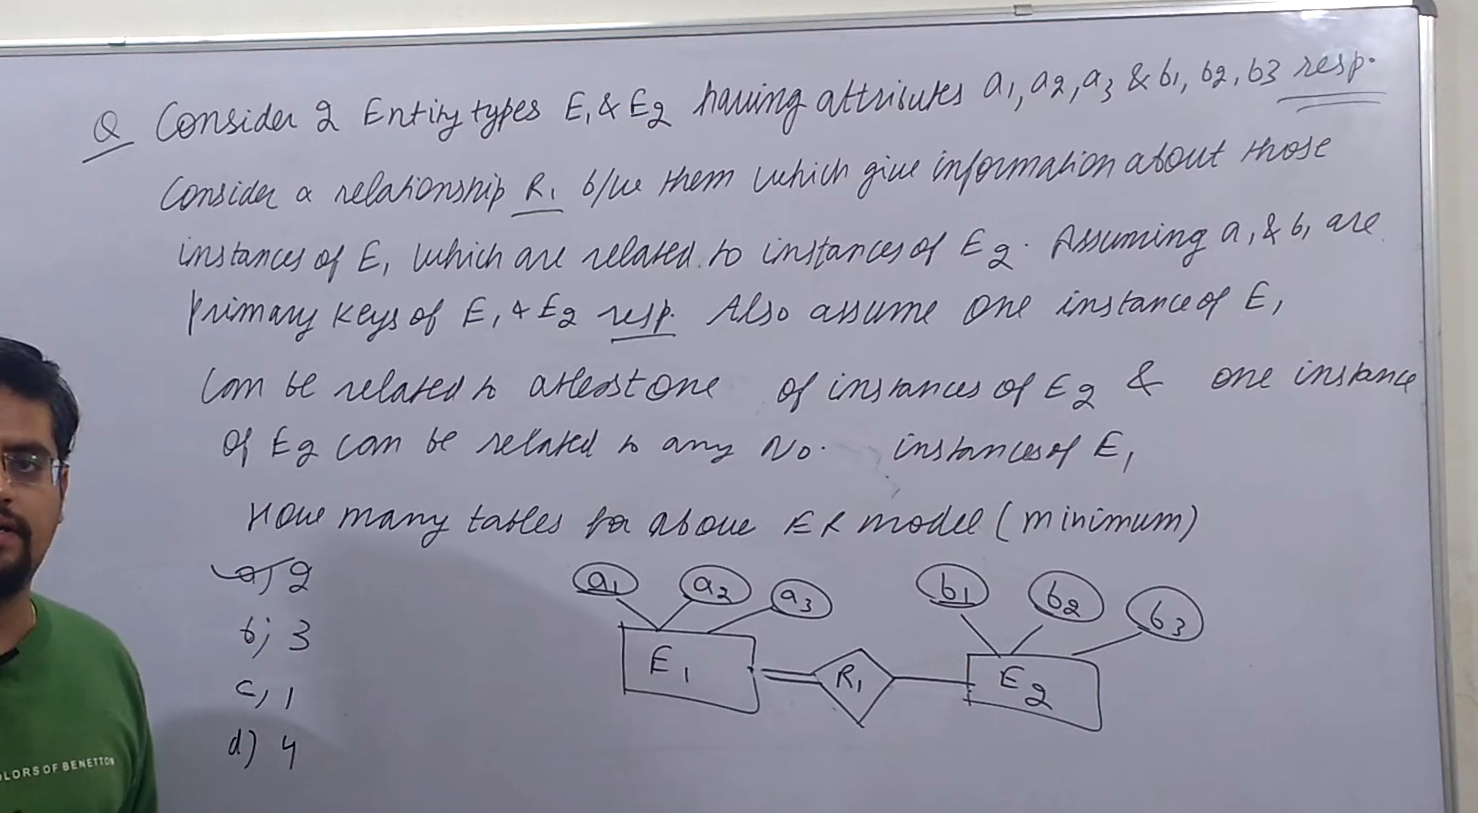 Q Consider 2 Entity types E1 & E2 having attributes a1, a2, a3 & b1, b2, b3 resp.
Consider a relationship R1 b/w them which give information about those
instances of E1 which are related to instances of E2. Assuming a1 & b1 are
primary keys of E1 & E2 resp. Also assume one instance of E1
can be related to atleast one of instances of E2 & one instance
of E2 can be related to any No. instances of E1
How many tables for above ER model (minimum)
a) 2
b) 3
c) 1
d) 4
a1 a2 a3 b1 b2 b3
E1 R1 E2
COLORS OF BENETTON